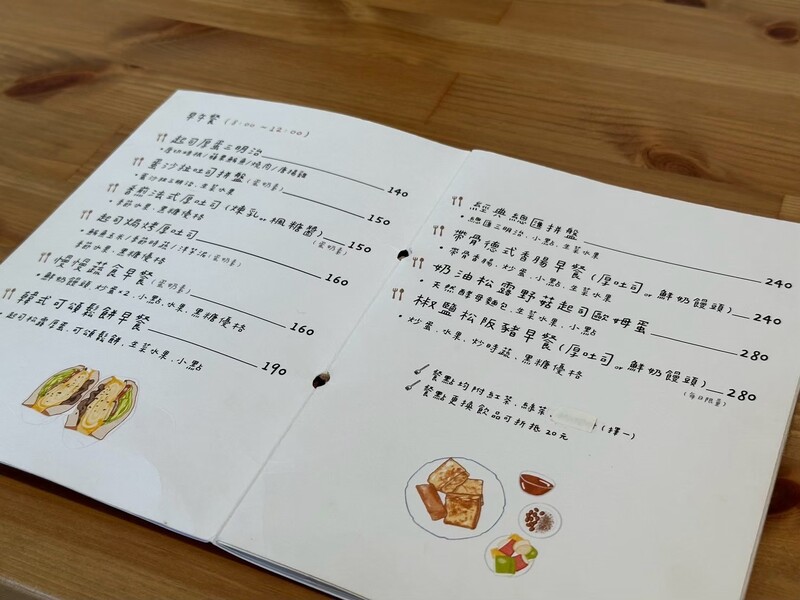 早午餐 (8:00～12:00)
起司厚蛋三明治 140
•厚切培根/蘋果鮪魚/燒肉/唐揚雞
薯沙拉吐司拼盤(蛋奶素) 150
•薯沙拉三明治、生菜水果
香煎法式厚吐司(煉乳or楓糖醬) 150
•季節水果、黑糖優格 (蛋奶素)
起司焗烤厚吐司 160
•鮪魚玉米/季節時蔬/洋芋泥(蛋奶素)
季節水果、黑糖優格
慢慢蔬食早餐(蛋奶素) 160
•鮮奶饅頭、炒蛋×2、小點、水果、黑糖優格
韓式可頌鬆餅早餐 190
•起司松露厚蛋、可頌鬆餅、生菜水果、小點
經典總匯拼盤 240
•總匯三明治、小點、生菜水果
帶骨德式香腸早餐(厚吐司or鮮奶饅頭) 240
•帶骨香腸、炒蛋、小點、生菜水果
奶油松露野菇起司歐姆蛋 280
•天然酵母麵包、生菜水果、小點
椒鹽松阪豬早餐(厚吐司or鮮奶饅頭) 280
•炒蛋、水果、炒時蔬、黑糖優格 (每日限量)
餐點均附紅茶、綠茶、(擇一)
餐點更換飲品可折抵20元